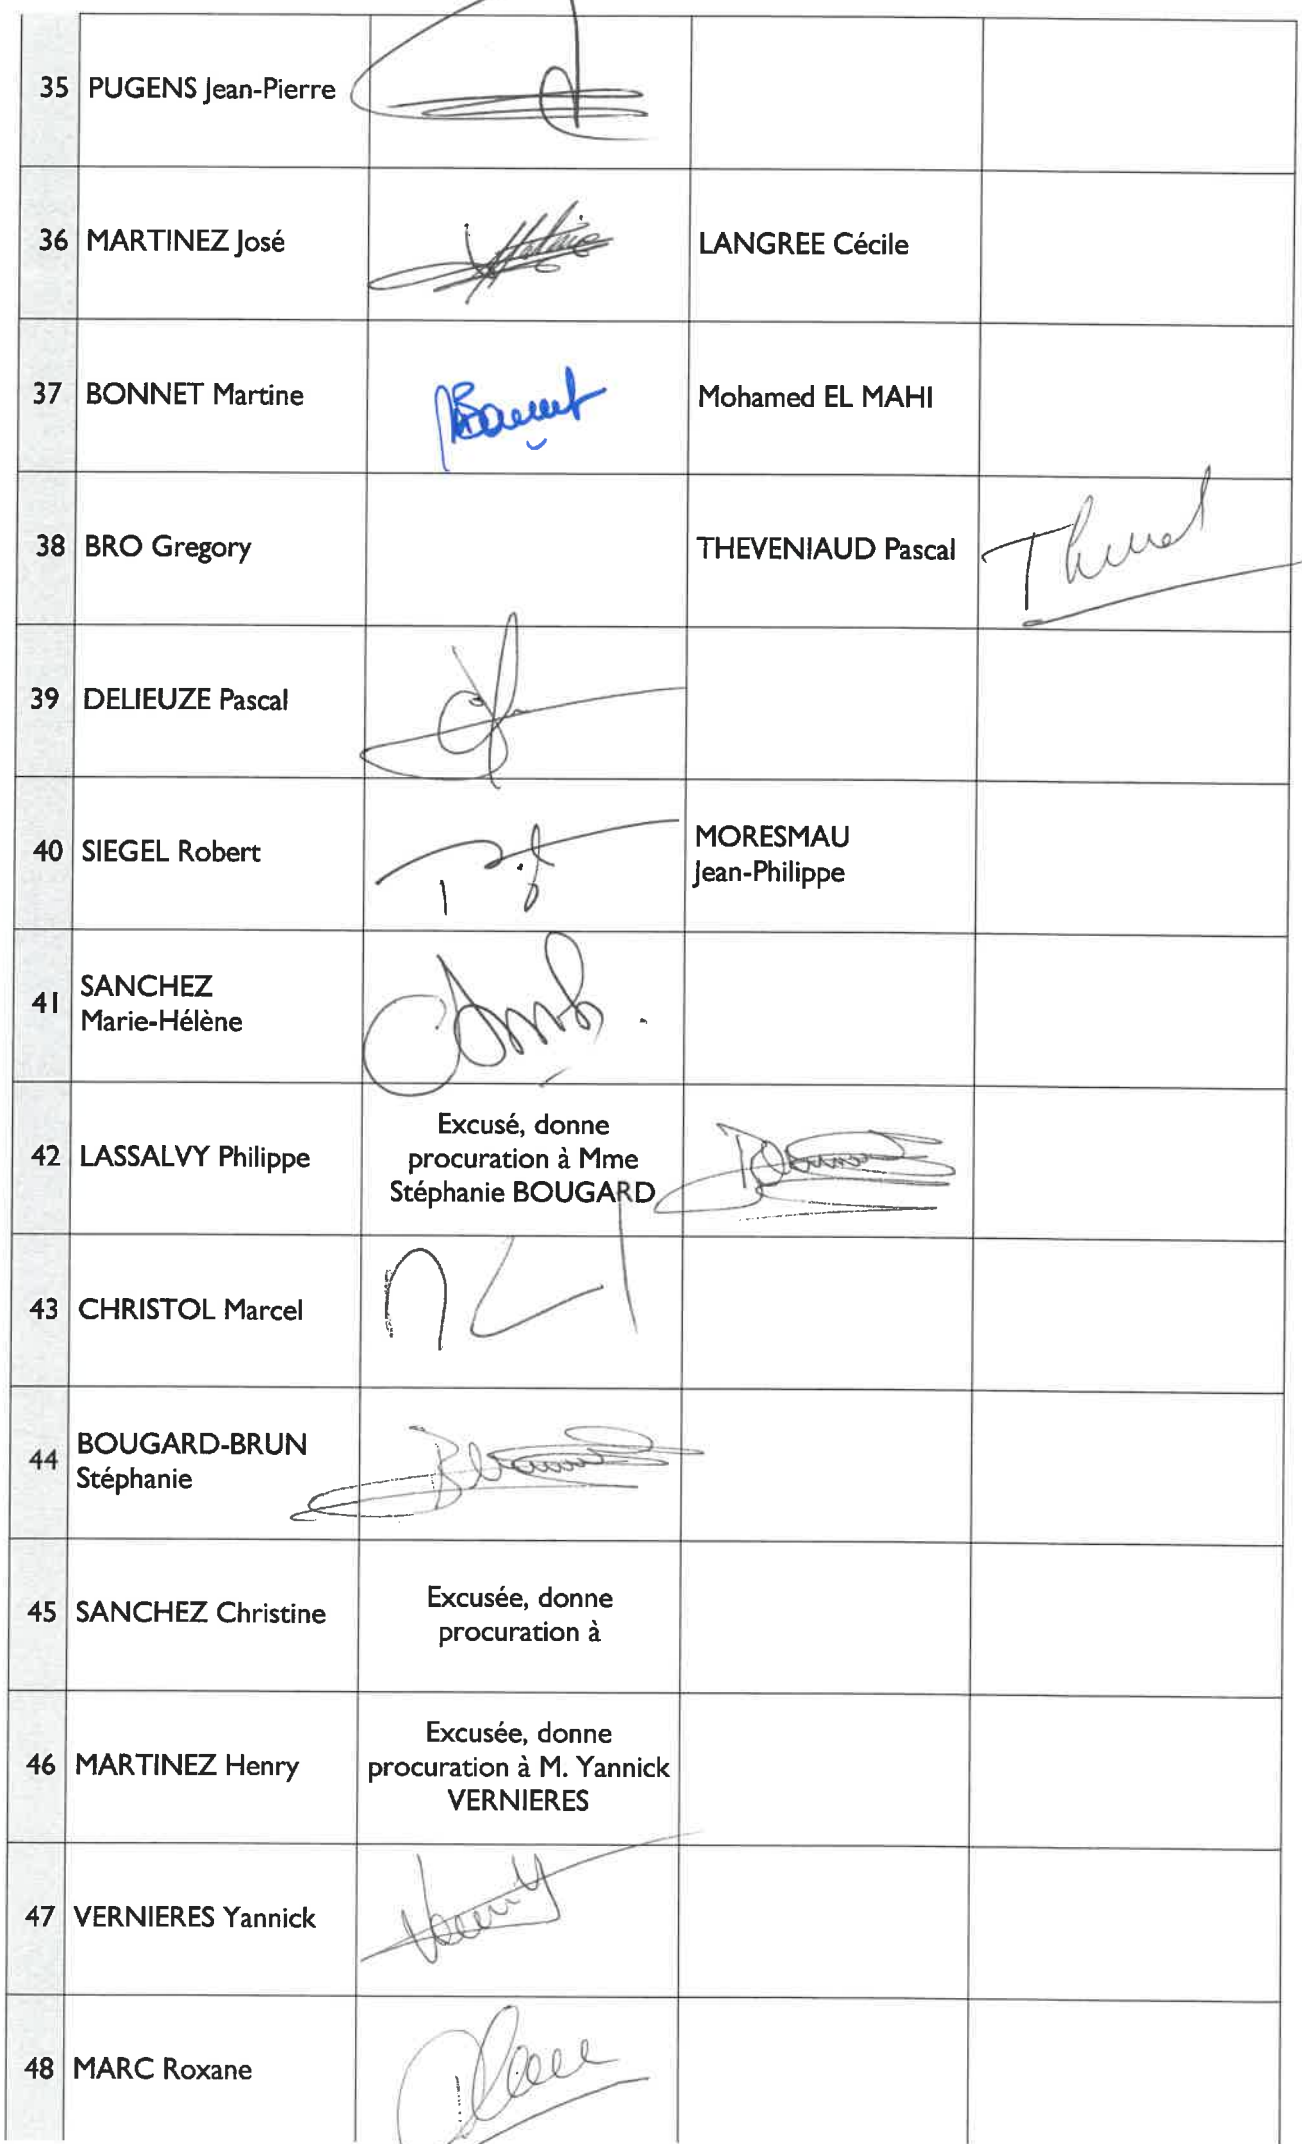 35 PUGENS Jean-Pierre
36 MARTINEZ José LANGREE Cécile
37 BONNET Martine Bonnet Mohamed EL MAHI
38 BRO Gregory THEVENIAUD Pascal
39 DELIEUZE Pascal
40 SIEGEL Robert MORESMAU
Jean-Philippe
41 SANCHEZ
Marie-Hélène
42 LASSALVY Philippe Excusé, donne
procuration à Mme
Stéphanie BOUGARD
43 CHRISTOL Marcel
44 BOUGARD-BRUN
Stéphanie
45 SANCHEZ Christine Excusée, donne
procuration à
46 MARTINEZ Henry Excusée, donne
procuration à M. Yannick
VERNIERES
47 VERNIERES Yannick
48 MARC Roxane